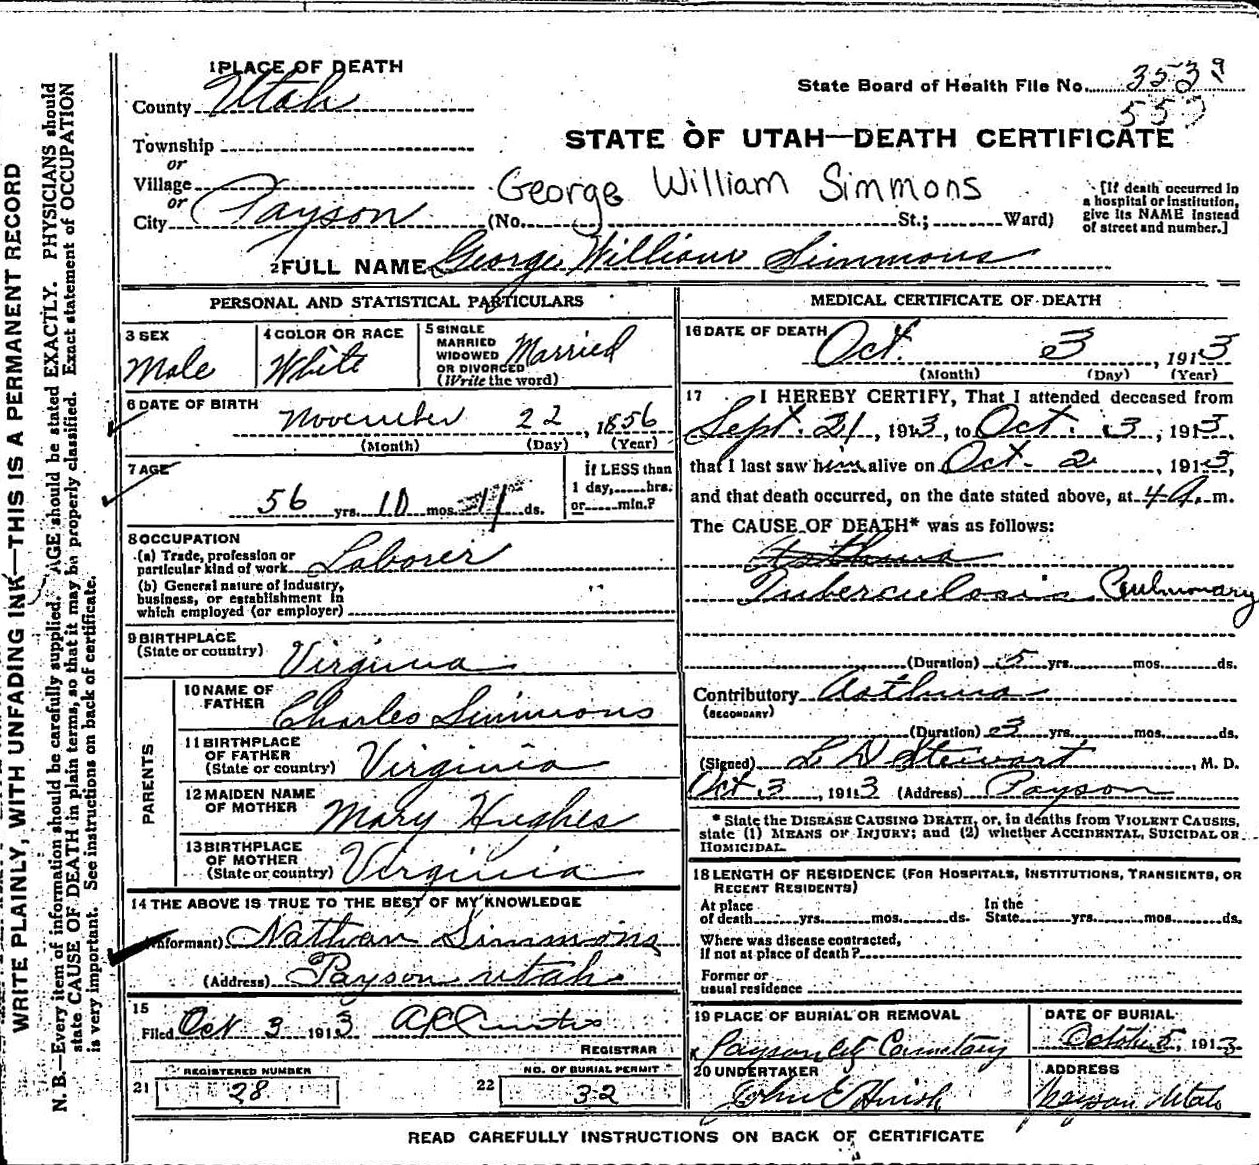 WRITE PLAINLY, WITH UNFADING INK—THIS IS A PERMANENT RECORD
N. B.—Every item of information should be carefully supplied. AGE should be stated EXACTLY. PHYSICIANS should
state CAUSE OF DEATH in plain terms, so that it may be properly classified. Exact statement of OCCUPATION
is very important. See instructions on back of certificate.
1 PLACE OF DEATH
County Utah
Township
or
Village
or
City Payson
State Board of Health File No. 3539
557
STATE OF UTAH—DEATH CERTIFICATE
George William Simmons
(No. St.; Ward)
[If death occurred in
a hospital or institution,
give its NAME instead
of street and number.]
2 FULL NAME George William Simmons
PERSONAL AND STATISTICAL PARTICULARS
3 SEX
Male
4 COLOR OR RACE
White
5 SINGLE
MARRIED
WIDOWED
OR DIVORCED
(Write the word)
Married
6 DATE OF BIRTH
November 22, 1856
(Month) (Day) (Year)
7 AGE
56 yrs. 10 mos. 11 ds.
If LESS than
1 day, hrs.
or min.?
8 OCCUPATION
(a) Trade, profession or
particular kind of work Laborer
(b) General nature of industry,
business, or establishment in
which employed (or employer)
9 BIRTHPLACE
(State or country) Virginia
PARENTS
10 NAME OF
FATHER Charles Simmons
11 BIRTHPLACE
OF FATHER
(State or country) Virginia
12 MAIDEN NAME
OF MOTHER Mary Hughes
13 BIRTHPLACE
OF MOTHER
(State or country) Virginia
14 THE ABOVE IS TRUE TO THE BEST OF MY KNOWLEDGE
(Informant) Nathan Simmons
(Address) Payson utah
15
Filed Oct 3 1913 A R Curtis
REGISTRAR
21 REGISTERED NUMBER
28
22 NO. OF BURIAL PERMIT
32
MEDICAL CERTIFICATE OF DEATH
16 DATE OF DEATH Oct. 3, 1913
(Month) (Day) (Year)
17 I HEREBY CERTIFY, That I attended deceased from
Sept. 21, 1913, to Oct. 3, 1913,
that I last saw him alive on Oct. 2, 1913,
and that death occurred, on the date stated above, at 4 a. m.
The CAUSE OF DEATH* was as follows:
Asthma
Tuberculosis Pulmonary
(Duration) 5 yrs. mos. ds.
Contributory Asthma
(SECONDARY)
(Duration) 3 yrs. mos. ds.
(Signed) L D Stewart, M. D.
Oct 3, 1913 (Address) Payson
* State the DISEASE CAUSING DEATH, or, in deaths from VIOLENT CAUSES,
state (1) MEANS OF INJURY; and (2) whether ACCIDENTAL, SUICIDAL OR
HOMICIDAL.
18 LENGTH OF RESIDENCE (FOR HOSPITALS, INSTITUTIONS, TRANSIENTS, OR
RECENT RESIDENTS)
At place
of death yrs. mos. ds.
In the
State yrs. mos. ds.
Where was disease contracted,
if not at place of death?
Former or
usual residence
19 PLACE OF BURIAL OR REMOVAL
Payson City Cemetary
DATE OF BURIAL
Octob 5, 1913
20 UNDERTAKER
John E Huish
ADDRESS
Payson Utah
READ CAREFULLY INSTRUCTIONS ON BACK OF CERTIFICATE